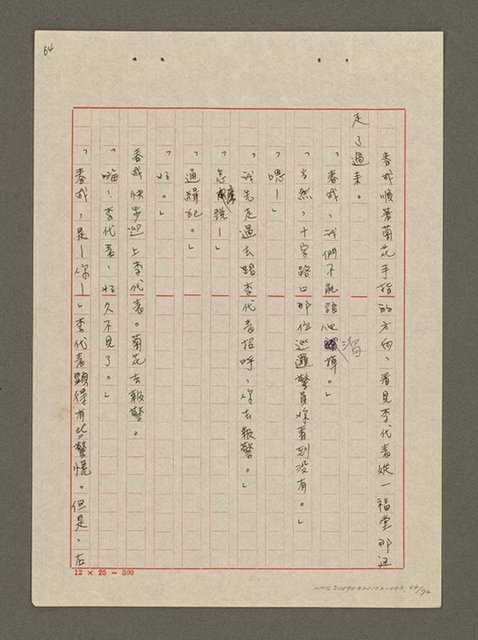 64
春成順著菊花手指的方向，看見李代表從一福堂那边
走了過來。
「春成，我們不能讓他溜掉。」
「当然，十字路口那位巡邏警員妳看到沒有。」
「嗯！」
「我先走過去跟李代表招呼，妳去報警。」
「怎麼說！」
「通緝犯。」
「好。」
春成快步迎上李代表。菊花去報警。
「嗨！李代表，好久不見了。」
「春成，是！你！」李代表顯得有些驚慌。但是，在
12 × 25 = 300